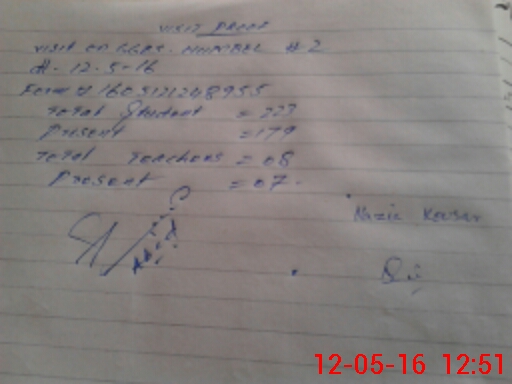 VISIT PROOF
VISIT ON GGPS. NUMBEL # 2
dt. 12-5-16
Form # 16051212
Total Student = 223
Present = 179
Total Teachers = 08
Present = 07.
Nazie Kousar
12-05-16 12:51